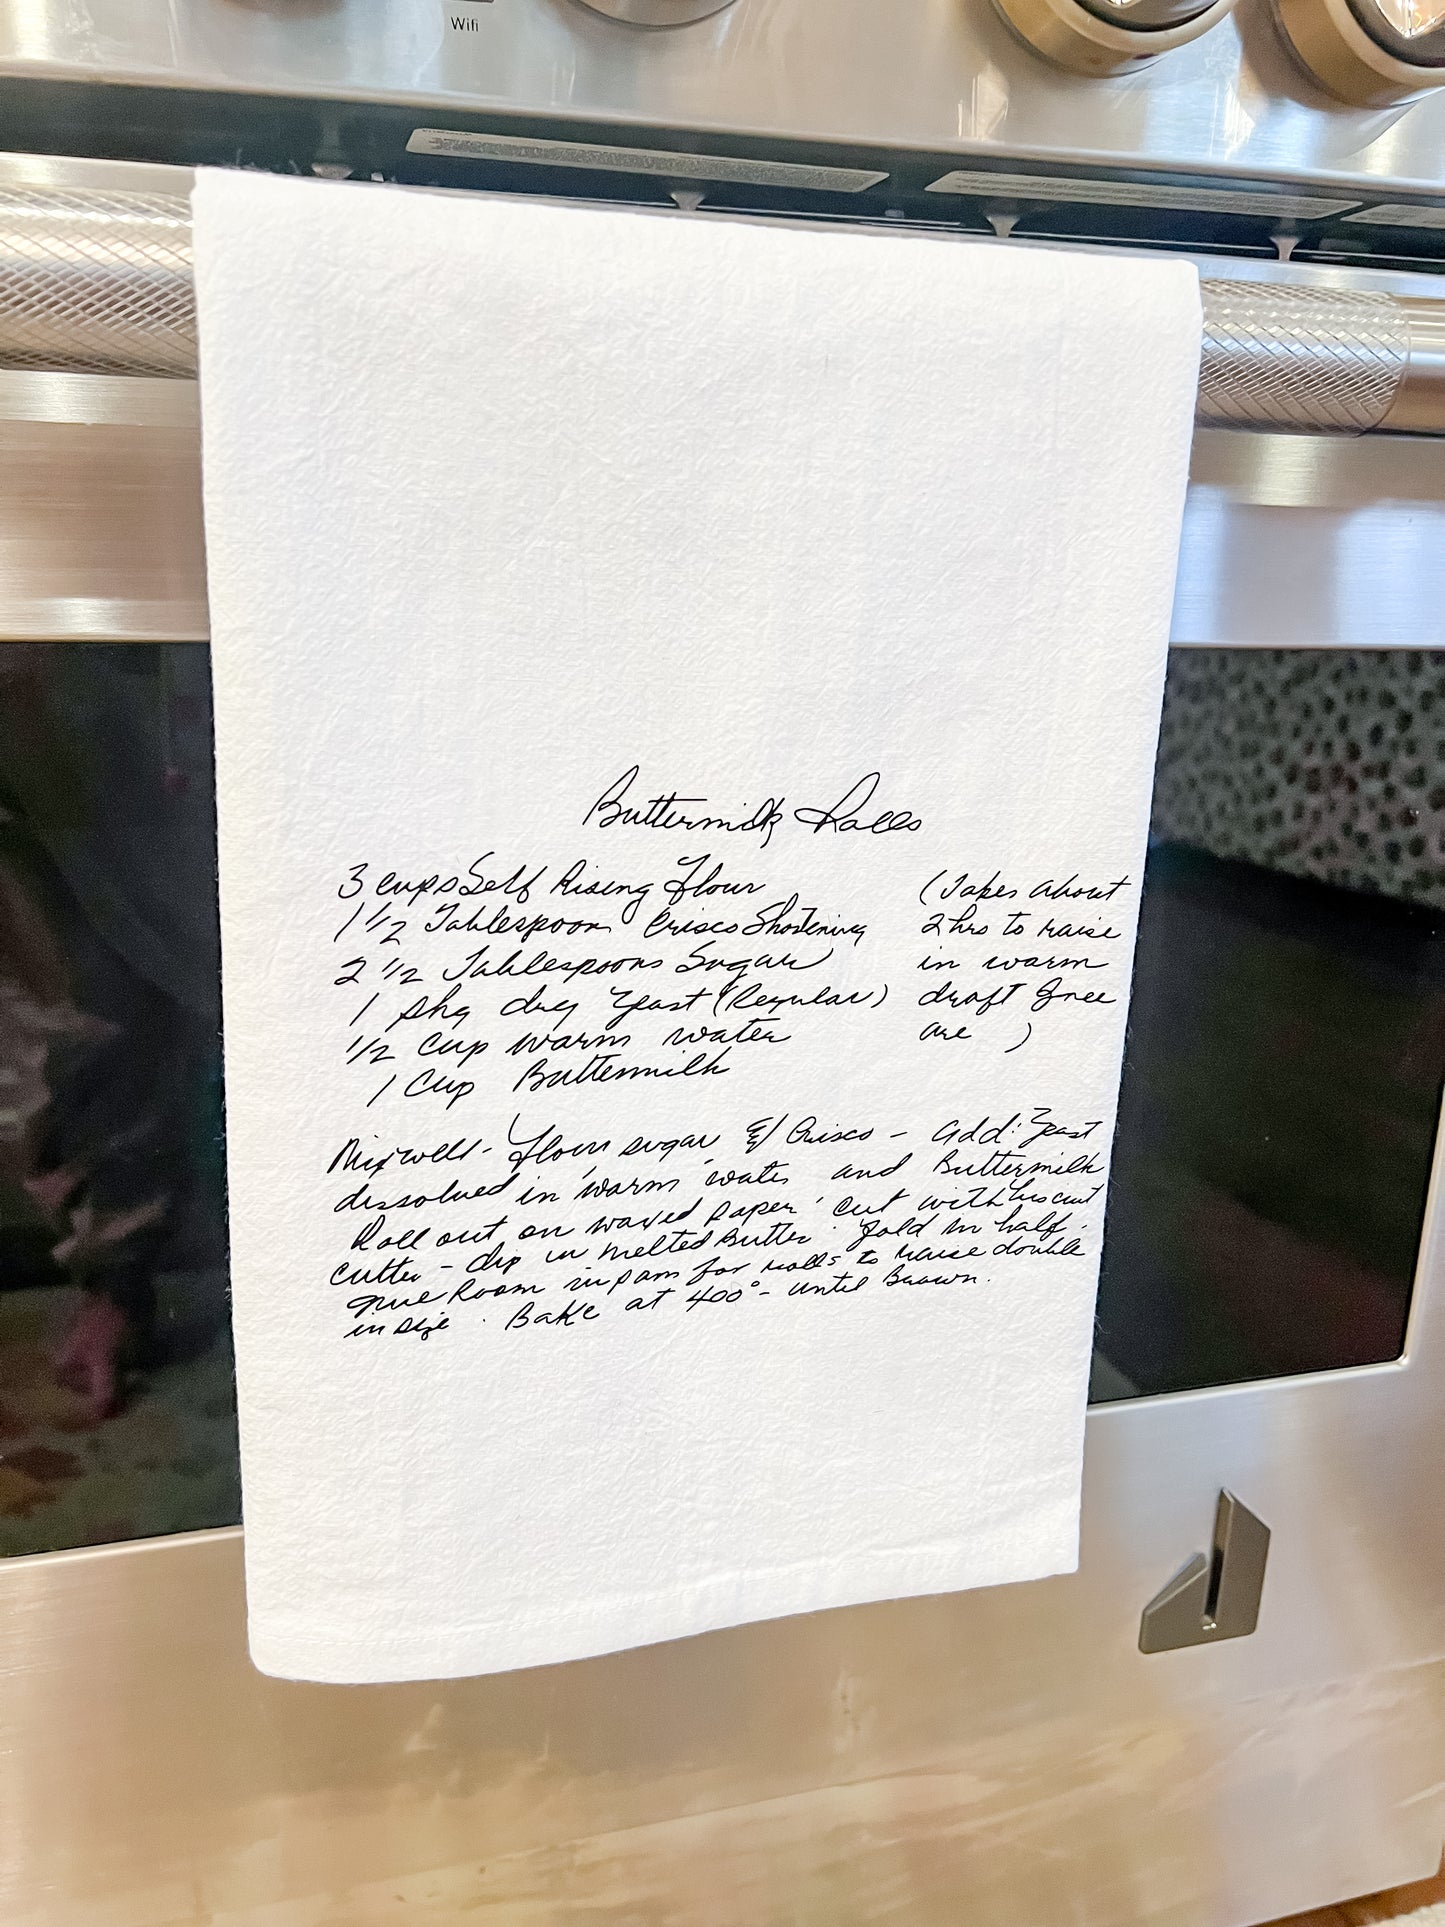 Wifi
Buttermilk Rolls
3 cups Self Rising Flour
1 1/2 Tablespoon Crisco Shortening
2 1/2 Tablespoons Sugar
1 pkg dry yeast (Regular)
1/2 cup warm water
1 Cup Buttermilk
(Takes about
2 hrs to raise
in warm
draft free
are )
Mix well - flour sugar & Crisco - add: yeast
dissolved in warm water and Buttermilk
Roll out on waxed paper cut with biscuit
cutter - dip in melted Butter. Fold in half.
give Room in pan for rolls to raise double
in size. Bake at 400° - until Brown.